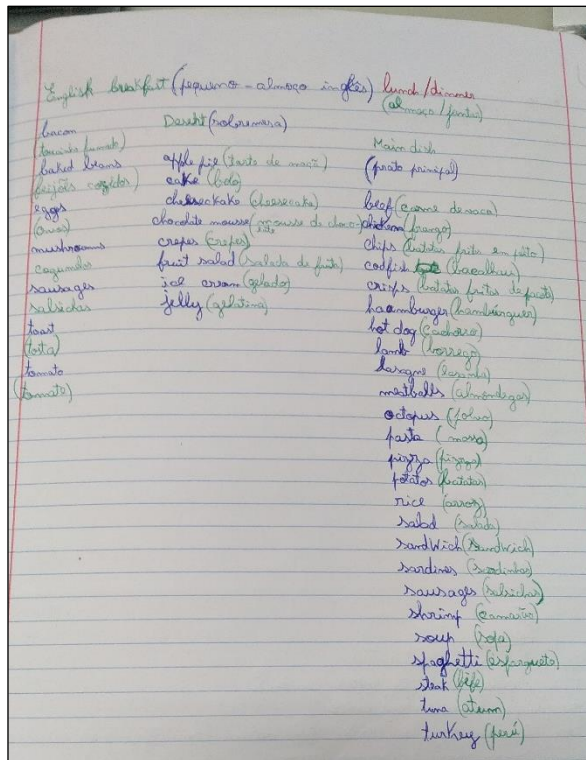 English breakfast (pequeno-almoço inglês)
bacon
(toucinho fumado)
baked beans
feijões cozidos)
eggs
(ovos)
mushrooms
cogumelos
sausages
salsichas
toast
(tosta)
tomato
(tomate)
Desert (sobremesa)
apple pie (tarte de maçã)
cake (bolo)
cheseckake (cheesecake)
chocolate mousse (mousse de choco-
late
crepes (crepes)
fruit salad (salada de fruta)
ice cream (gelado)
jelly (gelatina)
lunch/dinner
(almoço/jantar)
Main dish
(prato principal)
beef (carne de vaca)
chicken (frango)
chips (batatas fritas em palito)
codfish (bacalhau)
crisps (batatas fritas de pacote)
haamburger (hambúrguer)
hot dog (cachorro)
lamb (borrego)
lasagne (lasanha)
meatballs (almondegas)
octopus (polvo)
pasta (massa)
pizza (pizza)
potatos (batatas)
rice (arroz)
salad (salada)
sandwich (sandwich)
sardines (sardinhas)
sausages (salsichas)
shrimp (camarão)
soup (sopa)
spaghetti (esparguete)
steak (bife)
tuna (atum)
turkey (perú)